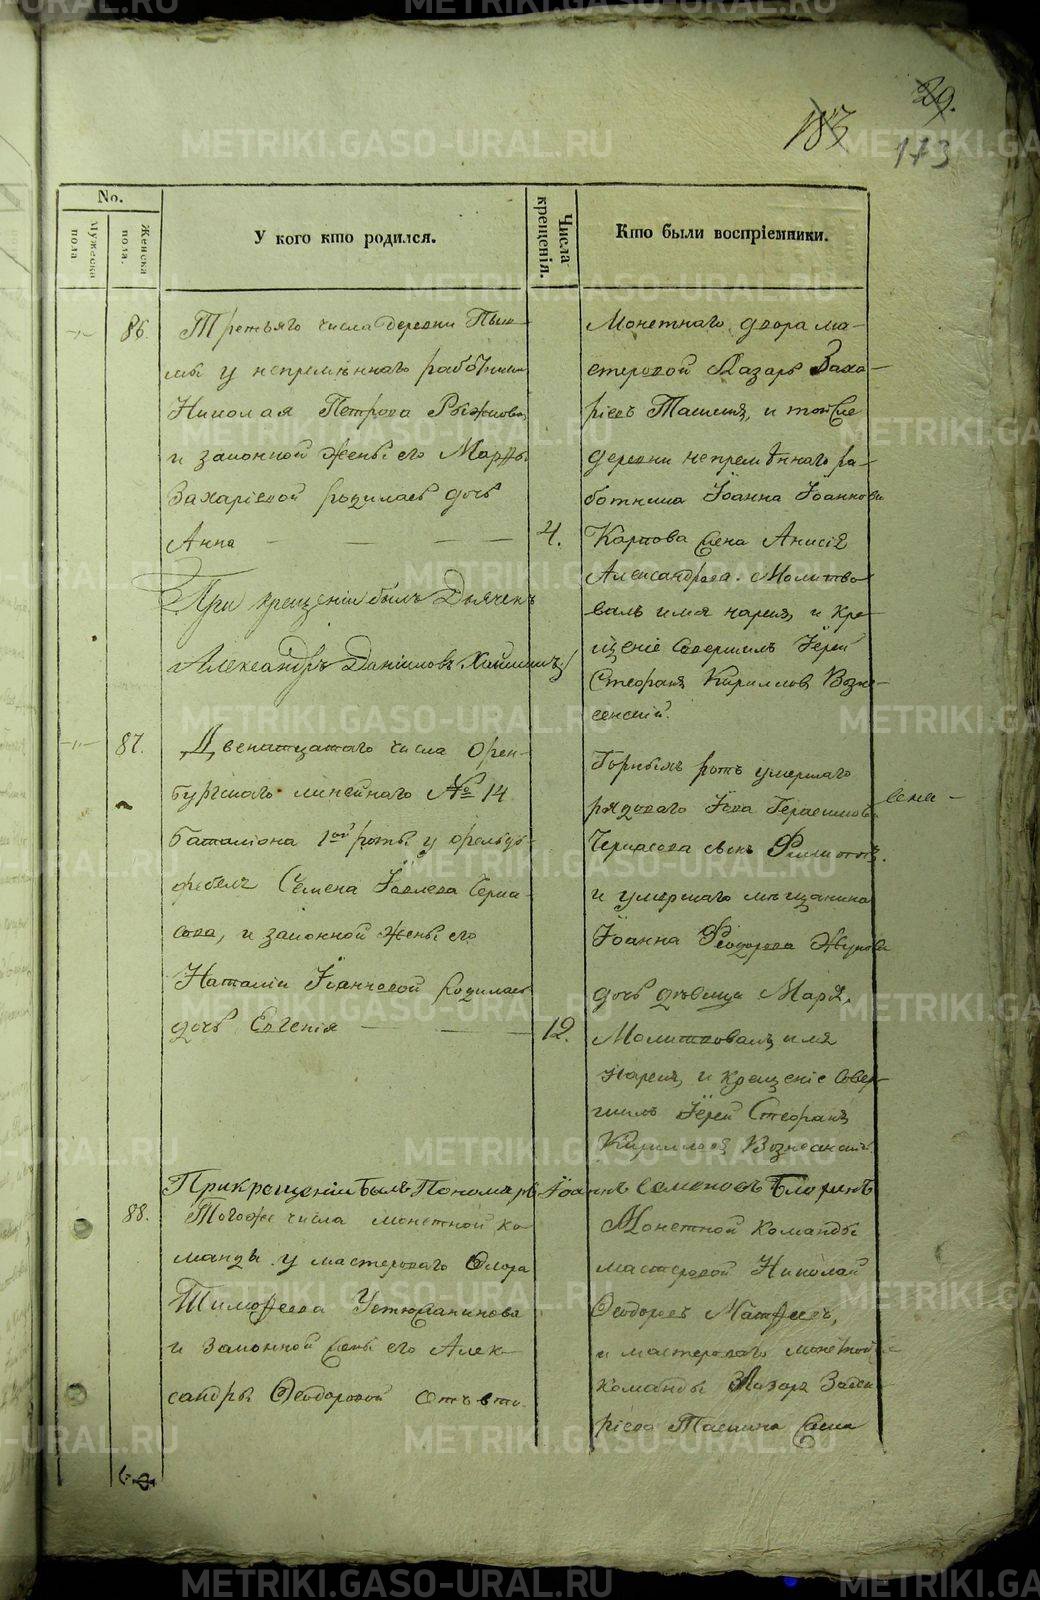 29.
183
173
No.
Мужеска пола
Женска пола.
У кого кто родился.
Числа крещенія.
Кто были воспріемники.
86.
Третьяго числа деревни Пыш-
мы у непремѣннаго работника
Николая Петрова Рыжкова,
и законной жены его Марѳы
Захаріевой родилась дочь
Анна
4.
Монетнаго двора ма-
стеровой Лазарь Заха-
ріевъ и той же
деревни непремѣннаго ра-
ботника Іоанна Іоаннова
Карпова жена Анисія
Александрова. Молитво-
валъ имя нарекъ, и кре-
щеніе совершилъ Іерей
Стефанъ Кирилловъ Возне-
сенскій.
При крещеніи былъ Дьячекъ
Александръ Даніиловъ
87.
Двенатцатаго числа Орен-
бургскаго линейнаго № 14
баталіона 1ой роты у фельдъ-
фебеля Семена Іовлева Черка-
сова, и законной жены его
Наталіи Іоанновой родилась
дочь Евгенія
12.
Горныхъ ротъ умершаго
рядоваго Іова Герасимова
Черкасова сынъ Филиппъ.
и умершаго мѣщанина
Іоанна Ѳеодорова
дочь дѣвица Марія.
Молитвовалъ имя
нарекъ, и крещеніе совер-
шилъ Іерей Стефанъ
Кирилловъ Вознесенскій
При крещеніи былъ Пономарь Іоаннъ Семеновъ
88.
Тогоже числа монетной ко-
манды у мастероваго Флора
Тимоѳеева Устюжанинова
и законной жены его Алек-
сандры Ѳеодоровой
Монетной команды
мастеровой Николай
Ѳеодоровъ Матѳеевъ,
и мастероваго монетной
команды Лазаря Заха-
ріева жена
METRIKI.GASO-URAL.RU